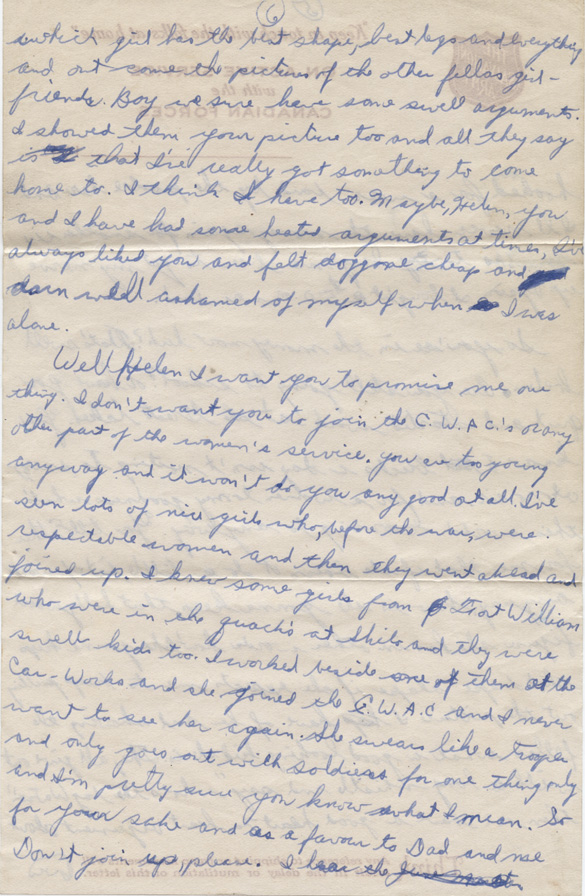 6
which girl has the best shape, best legs and everything
and out come the pictures of the other fellas girl-
friends. Boy we sure have some swell arguments.
I showed them your picture too and all they say
is that I've really got something to come
home to. I think I have too. Maybe, Helen, you
and I have had some heated arguments at times, I've
always liked you and felt doggone cheap and
darn well ashamed of myself when I was
alone.
Well Helen I want you to promise me one
thing. I don't want you to join the C.W.A.C.'s or any
other part of the women's service. you are too young
anyway and it won't do you any good at all. I've
seen lots of nice girls who, before the war, were
respectable women and then they went ahead and
joined up. I knew some girls from Fort William
who were in the quack's at Shilo and they were
swell kids too. I worked beside one of them at the
Car-Works and she joined the C.W.A.C and I never
want to see her again. She swears like a trooper
and only goes out with soldiers for one thing only
and I'm pretty sure you know what I mean. So
for your sake and as a favour to Dad and me
Don't join up please. I the